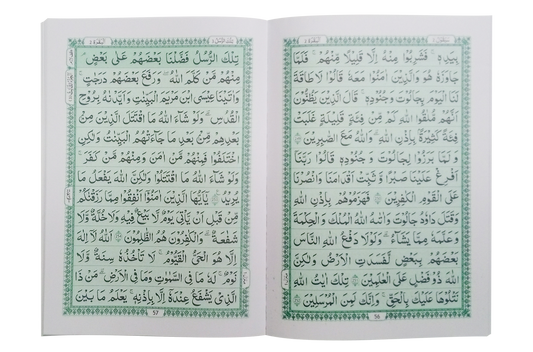 بِيَدِهٖ ۚ فَشَرِبُوْا مِنْهُ اِلَّا قَلِيْلًا مِّنْهُمْ ؕ فَلَمَّا
جَاوَزَهٗ هُوَ وَالَّذِيْنَ اٰمَنُوْا مَعَهٗ ۙ قَالُوْا لَا طَاقَةَ
لَنَا الْيَوْمَ بِجَالُوْتَ وَجُنُوْدِهٖ ؕ قَالَ الَّذِيْنَ يَظُنُّوْنَ
اَنَّهُمْ مُّلٰقُوا اللّٰهِ ۙ كَمْ مِّنْ فِئَةٍ قَلِيْلَةٍ غَلَبَتْ
فِئَةً كَثِيْرَةًۢ بِاِذْنِ اللّٰهِ ؕ وَاللّٰهُ مَعَ الصّٰبِرِيْنَ ۝
وَلَمَّا بَرَزُوْا لِجَالُوْتَ وَجُنُوْدِهٖ قَالُوْا رَبَّنَاۤ
اَفْرِغْ عَلَيْنَا صَبْرًا وَّثَبِّتْ اَقْدَامَنَا وَانْصُرْنَا
عَلَى الْقَوْمِ الْكٰفِرِيْنَ ۝ فَهَزَمُوْهُمْ بِاِذْنِ اللّٰهِ
وَقَتَلَ دَاوٗدُ جَالُوْتَ وَاٰتٰىهُ اللّٰهُ الْمُلْكَ وَالْحِكْمَةَ
وَعَلَّمَهٗ مِمَّا يَشَآءُ ؕ وَلَوْلَا دَفْعُ اللّٰهِ النَّاسَ
بَعْضَهُمْ بِبَعْضٍ لَّفَسَدَتِ الْاَرْضُ وَلٰكِنَّ
اللّٰهَ ذُوْ فَضْلٍ عَلَى الْعٰلَمِيْنَ ۝ تِلْكَ اٰيٰتُ اللّٰهِ
نَتْلُوْهَا عَلَيْكَ بِالْحَقِّ ؕ وَاِنَّكَ لَمِنَ الْمُرْسَلِيْنَ ۝
56
تِلْكَ الرُّسُلُ فَضَّلْنَا بَعْضَهُمْ عَلٰى بَعْضٍ ۘ
مِنْهُمْ مَّنْ كَلَّمَ اللّٰهُ وَرَفَعَ بَعْضَهُمْ دَرَجٰتٍ ؕ
وَاٰتَيْنَا عِيْسَى ابْنَ مَرْيَمَ الْبَيِّنٰتِ وَاَيَّدْنٰهُ بِرُوْحِ
الْقُدُسِ ؕ وَلَوْ شَآءَ اللّٰهُ مَا اقْتَتَلَ الَّذِيْنَ مِنْۢ
بَعْدِهِمْ مِّنْۢ بَعْدِ مَا جَآءَتْهُمُ الْبَيِّنٰتُ وَلٰكِنِ
اخْتَلَفُوْا فَمِنْهُمْ مَّنْ اٰمَنَ وَمِنْهُمْ مَّنْ كَفَرَ ؕ
وَلَوْ شَآءَ اللّٰهُ مَا اقْتَتَلُوْا ۟ وَلٰكِنَّ اللّٰهَ يَفْعَلُ مَا
يُرِيْدُ ۝ يٰۤاَيُّهَا الَّذِيْنَ اٰمَنُوْۤا اَنْفِقُوْا مِمَّا رَزَقْنٰكُمْ
مِّنْ قَبْلِ اَنْ يَّاْتِيَ يَوْمٌ لَّا بَيْعٌ فِيْهِ وَلَا خُلَّةٌ وَّلَا
شَفَاعَةٌ ؕ وَالْكٰفِرُوْنَ هُمُ الظّٰلِمُوْنَ ۝ اَللّٰهُ لَاۤ اِلٰهَ
اِلَّا هُوَ الْحَيُّ الْقَيُّوْمُ ۚ لَا تَاْخُذُهٗ سِنَةٌ وَّلَا
نَوْمٌ ؕ لَهٗ مَا فِي السَّمٰوٰتِ وَمَا فِي الْاَرْضِ ؕ مَنْ ذَا
الَّذِيْ يَشْفَعُ عِنْدَهٗۤ اِلَّا بِاِذْنِهٖ ؕ يَعْلَمُ مَا بَيْنَ
57